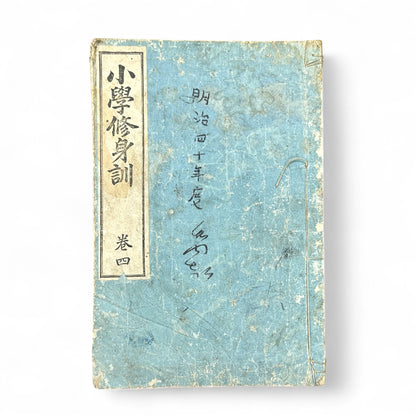 小學修身訓 巻四
明治四十年度